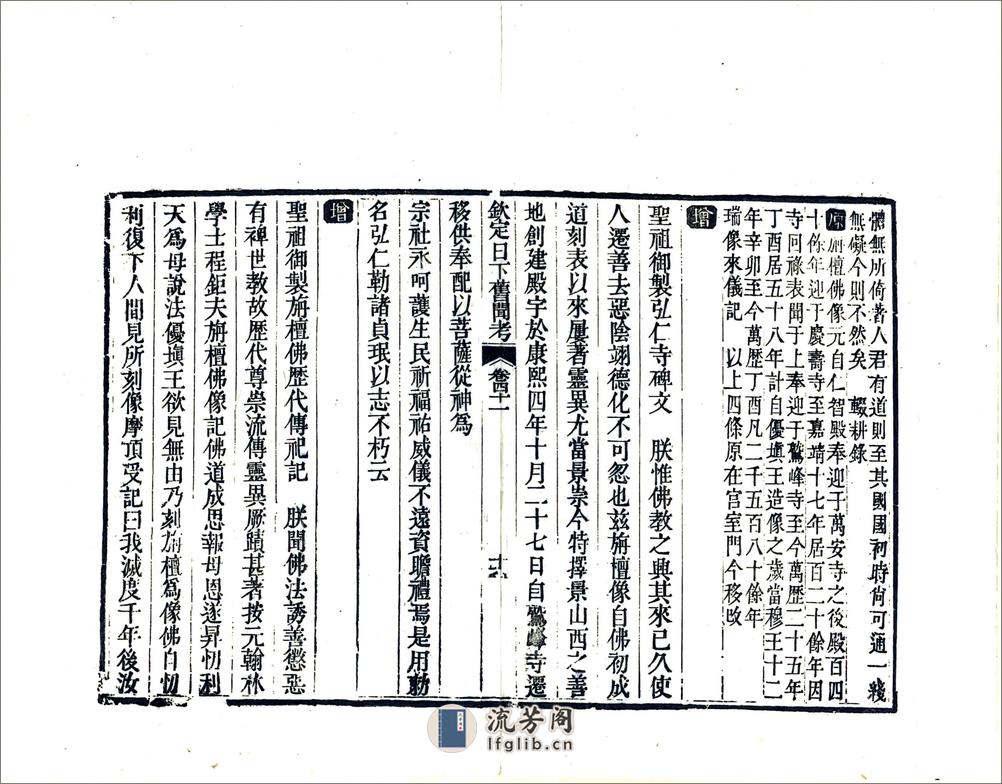 體無所倚著人君有道則至其國國初時尙可通一綫
無礙今則不然矣　輟耕錄
原 旃檀佛像元自仁智殿奉迎于萬安寺之後殿百四
十餘年迎于慶壽寺至嘉靖十七年居百二十餘年因
寺回祿表聞于上奉迎于鷲峰寺至今萬歷二十五年
丁酉居五十八年計自優塡王造像之歲當穆王十二
年辛卯至今萬歷丁酉凡二千五百八十餘年
瑞像來儀記　以上四條原在官室門今移改
增
聖祖御製弘仁寺碑文　朕惟佛教之興其來已久使
人遷善去惡陰翊德化不可忽也兹旃檀像自佛初成
道刻表以來屢著靈異尤當景崇今特擇景山西之善
地創建殿宇於康熙四年十月二十七日自鷲峰寺遷
欽定日下舊聞考
卷四十一
十六
移供奉配以菩薩從神爲
宗社永呵護生民祈福祐威儀不遠資瞻禮焉是用勒
名弘仁勒諸貞珉以志不朽云
增
聖祖御製旃檀佛歷代傳祀記　朕聞佛法誘善懲惡
有裨世教故歷代尊崇流傳靈異厥蹟甚著按元翰林
學士程鉅夫旃檀佛像記佛道成思報母恩遂昇忉利
天爲母說法優塡王欲見無由乃刻旃檀爲像佛自忉
利復下人間見所刻像摩頂受記曰我滅度千年後汝
流芳阁
lfglib.cn